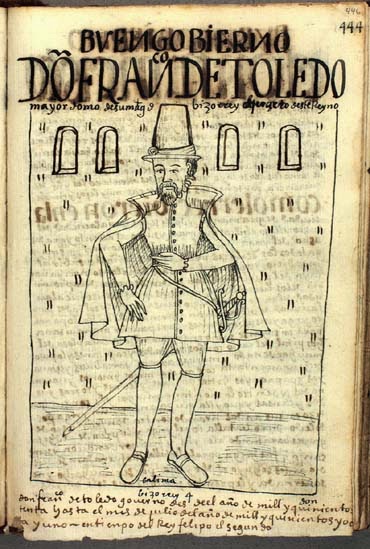 446
444
BVENGOBIERNO
DÕFRANcoDETOLEDO
mayordomo desumagd bizorrey deste Reyno
enlima
bizorrey 4
don franco de toledo governo desdeel año de mill y quinientos
tenta hasta el mis de julio del año de mill y quinientos yo
ta y uno — entienpo del Rey felipo el segundo
don